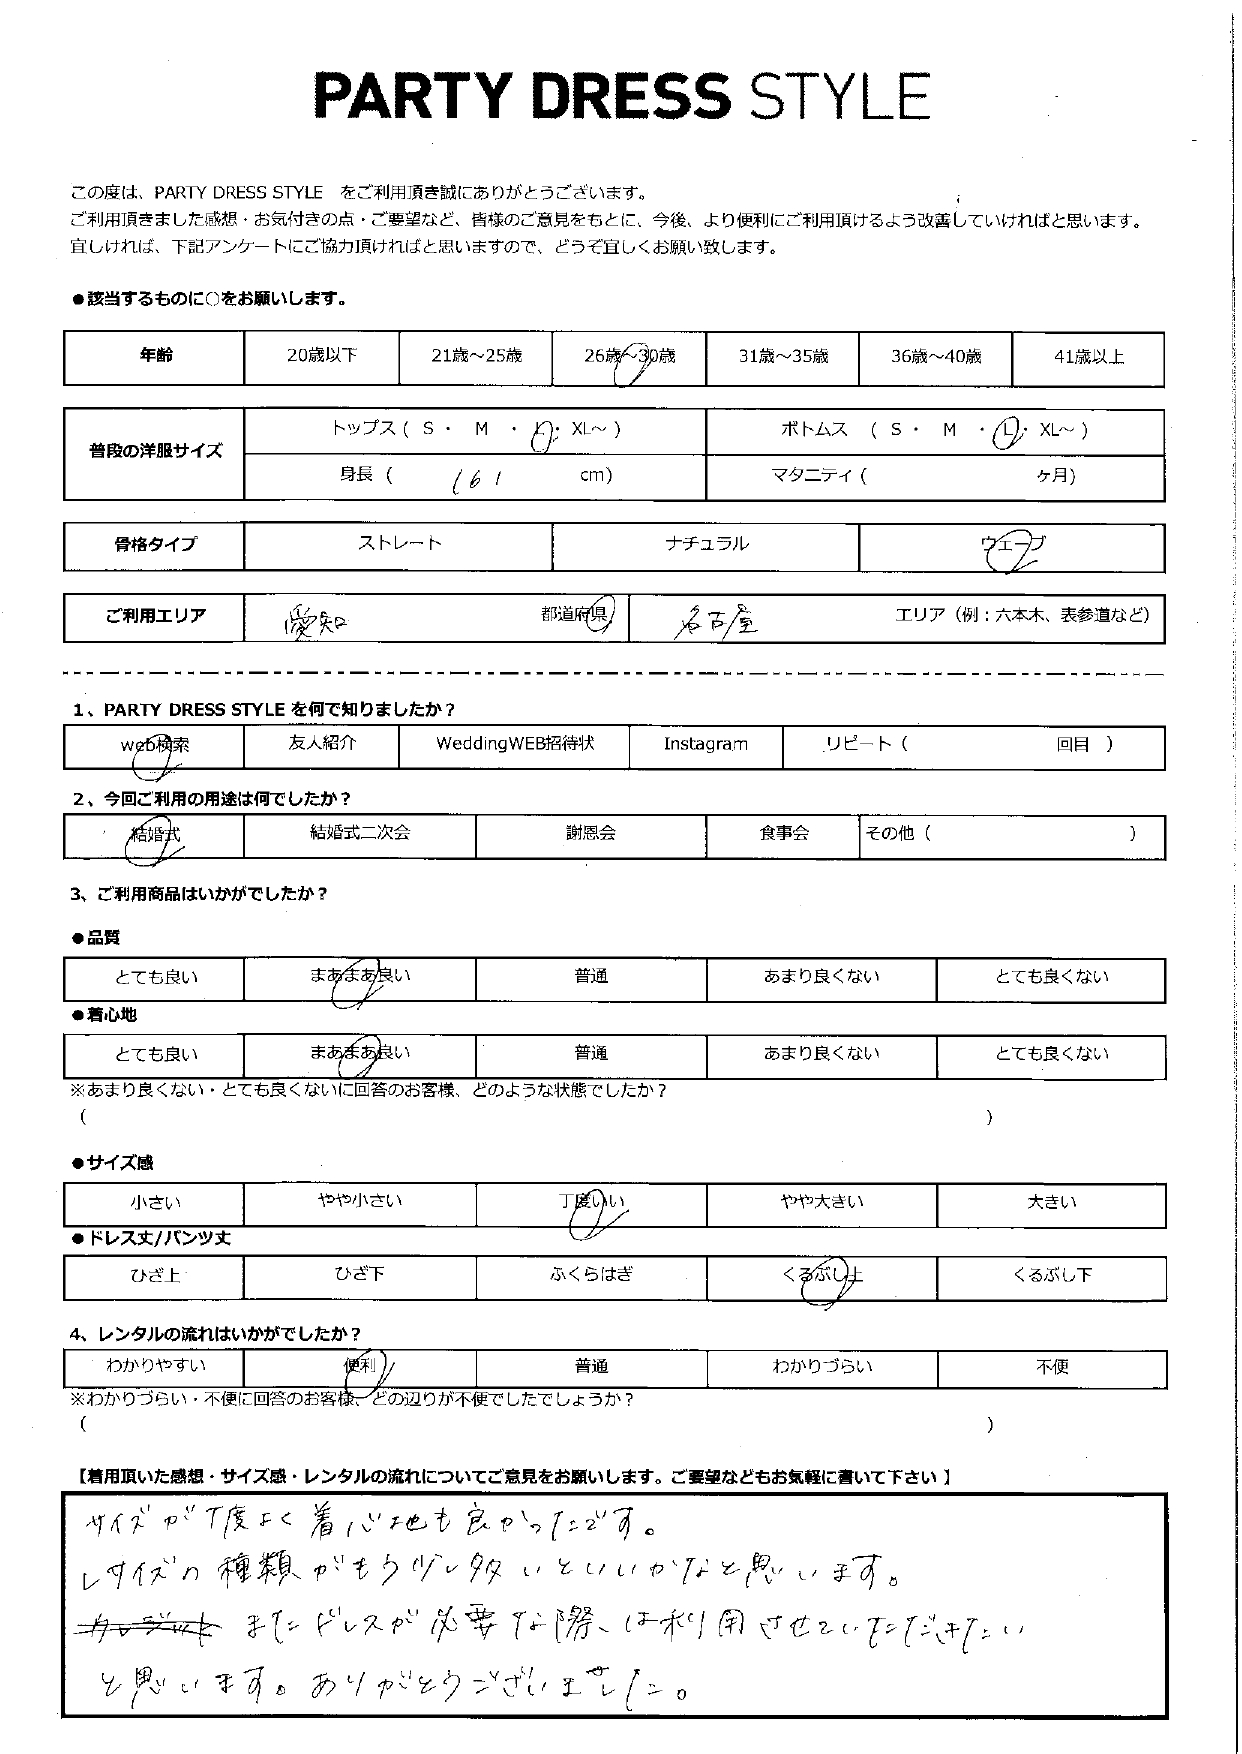 PARTY DRESS STYLE
この度は、PARTY DRESS STYLE をご利用頂き誠にありがとうございます。
ご利用頂きました感想・お気付きの点・ご要望など、皆様のご意見をもとに、今後、より便利にご利用頂けるよう改善していければと思います。
宜しければ、下記アンケートにご協力頂ければと思いますので、どうぞ宜しくお願い致します。
●該当するものに○をお願いします。
年齢 20歳以下 21歳～25歳 26歳～30歳 31歳～35歳 36歳～40歳 41歳以上
普段の洋服サイズ トップス ( S ・ M ・ L ・ XL～ ) ボトムス ( S ・ M ・ L ・ XL～ )
身長 ( 161 cm) マタニティ ( ヶ月)
骨格タイプ ストレート ナチュラル ウェーブ
ご利用エリア 愛知 都道府県 名古屋 エリア（例：六本木、表参道など）
1、PARTY DRESS STYLE を何で知りましたか？
web検索 友人紹介 WeddingWEB招待状 Instagram リピート ( 回目 )
2、今回ご利用の用途は何でしたか？
結婚式 結婚式二次会 謝恩会 食事会 その他 ( )
3、ご利用商品はいかがでしたか？
●品質
とても良い まあまあ良い 普通 あまり良くない とても良くない
●着心地
とても良い まあまあ良い 普通 あまり良くない とても良くない
※あまり良くない・とても良くないに回答のお客様、どのような状態でしたか？
( )
●サイズ感
小さい やや小さい 丁度いい やや大きい 大きい
●ドレス丈/パンツ丈
ひざ上 ひざ下 ふくらはぎ くるぶし上 くるぶし下
4、レンタルの流れはいかがでしたか？
わかりやすい 便利 普通 わかりづらい 不便
※わかりづらい・不便に回答のお客様、どの辺りが不便でしたでしょうか？
( )
【着用頂いた感想・サイズ感・レンタルの流れについてご意見をお願いします。ご要望などもお気軽に書いて下さい 】
サイズが丁度よく着心地も良かったです。
Lサイズの種類がもう少し多いといいかなと思います。
またドレスが必要な際は利用させていただきたい
と思います。ありがとうございました。